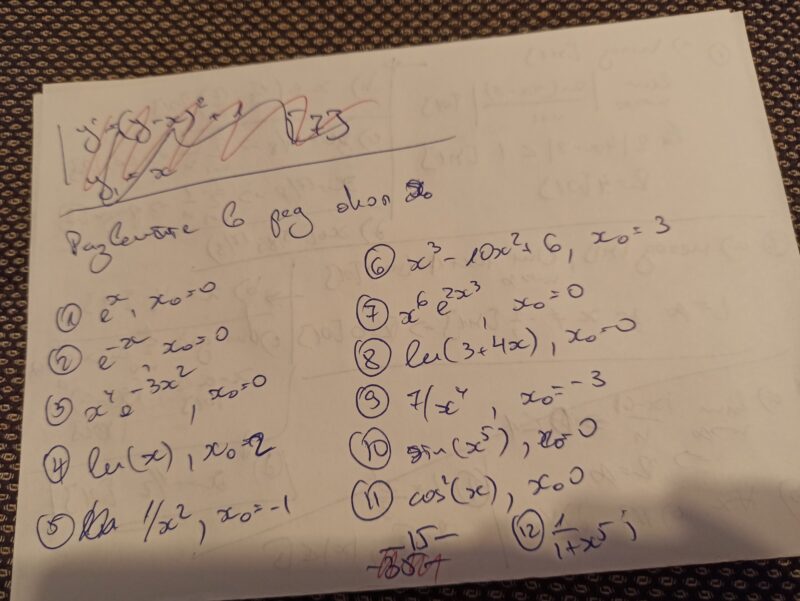 y' = (y-x)² + 1
y₁ = x
Развийте в ред около x₀
① eˣ, x₀=0
② e⁻ˣ x₀=0
③ x⁴e⁻³ˣ², x₀=0
④ ln(x), x₀=2
⑤ 1/x², x₀=-1
⑥ x³-10x²+6, x₀=3
⑦ x⁶e²ˣ³, x₀=0
⑧ ln(3+4x), x₀=0
⑨ 7/x⁴, x₀=-3
⑩ sin(x⁵), x₀=0
⑪ cos²(x), x₀0
⑫ 1/1+x⁵ ;
-15-